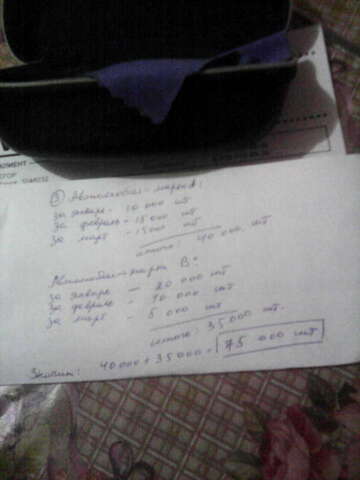 ③ Автомобили марки А:
за январь - 10 000 шт
за февраль - 15 000 шт
за март - 15000 шт
итого: 40 000 шт.
Автомобили марки В:
за январь - 20 000 шт
за февраль - 10 000 шт
за март - 5 000 шт
итого: 35 000 шт.
Значит: 40 000 + 35 000 = 75 000 шт